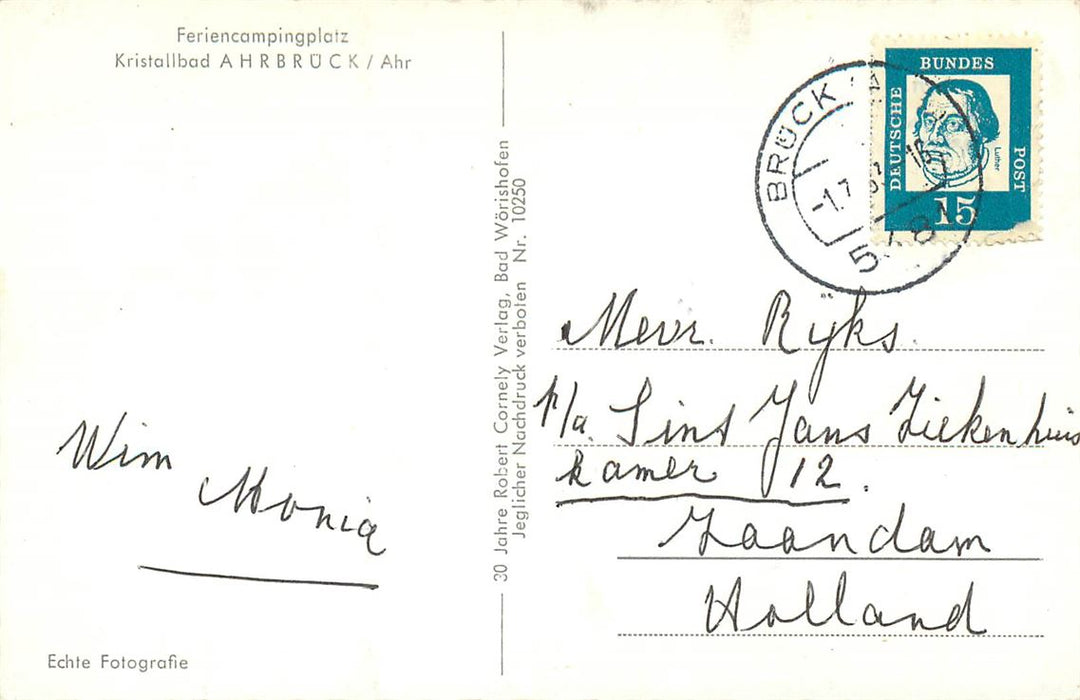 Feriencampingplatz
Kristallbad AHRBRÜCK / Ahr
DEUTSCHE BUNDES POST
Luther
15
BRÜCK
-1.7
30 Jahre Robert Cornely Verlag, Bad Wörishofen
Jeglicher Nachdruck verboten Nr. 10250
Mevr. Ryks.
p/a. Sint Jans Ziekenhuis
kamer 12.
Zaandam
Holland
Wim
Monia
Echte Fotografie